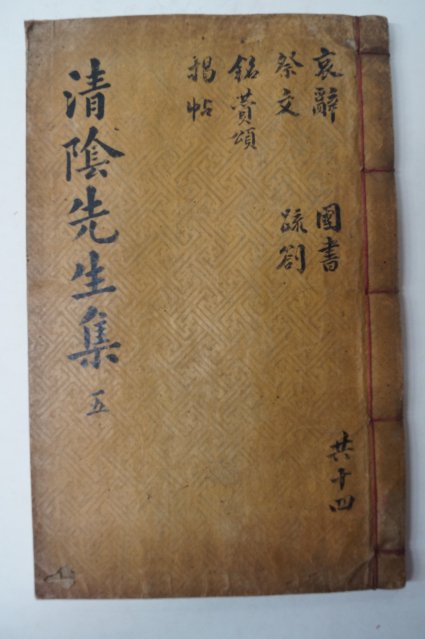 清陰先生集 五
哀辭 國書
祭文 疏劄
銘贊頌
揭帖
共十四